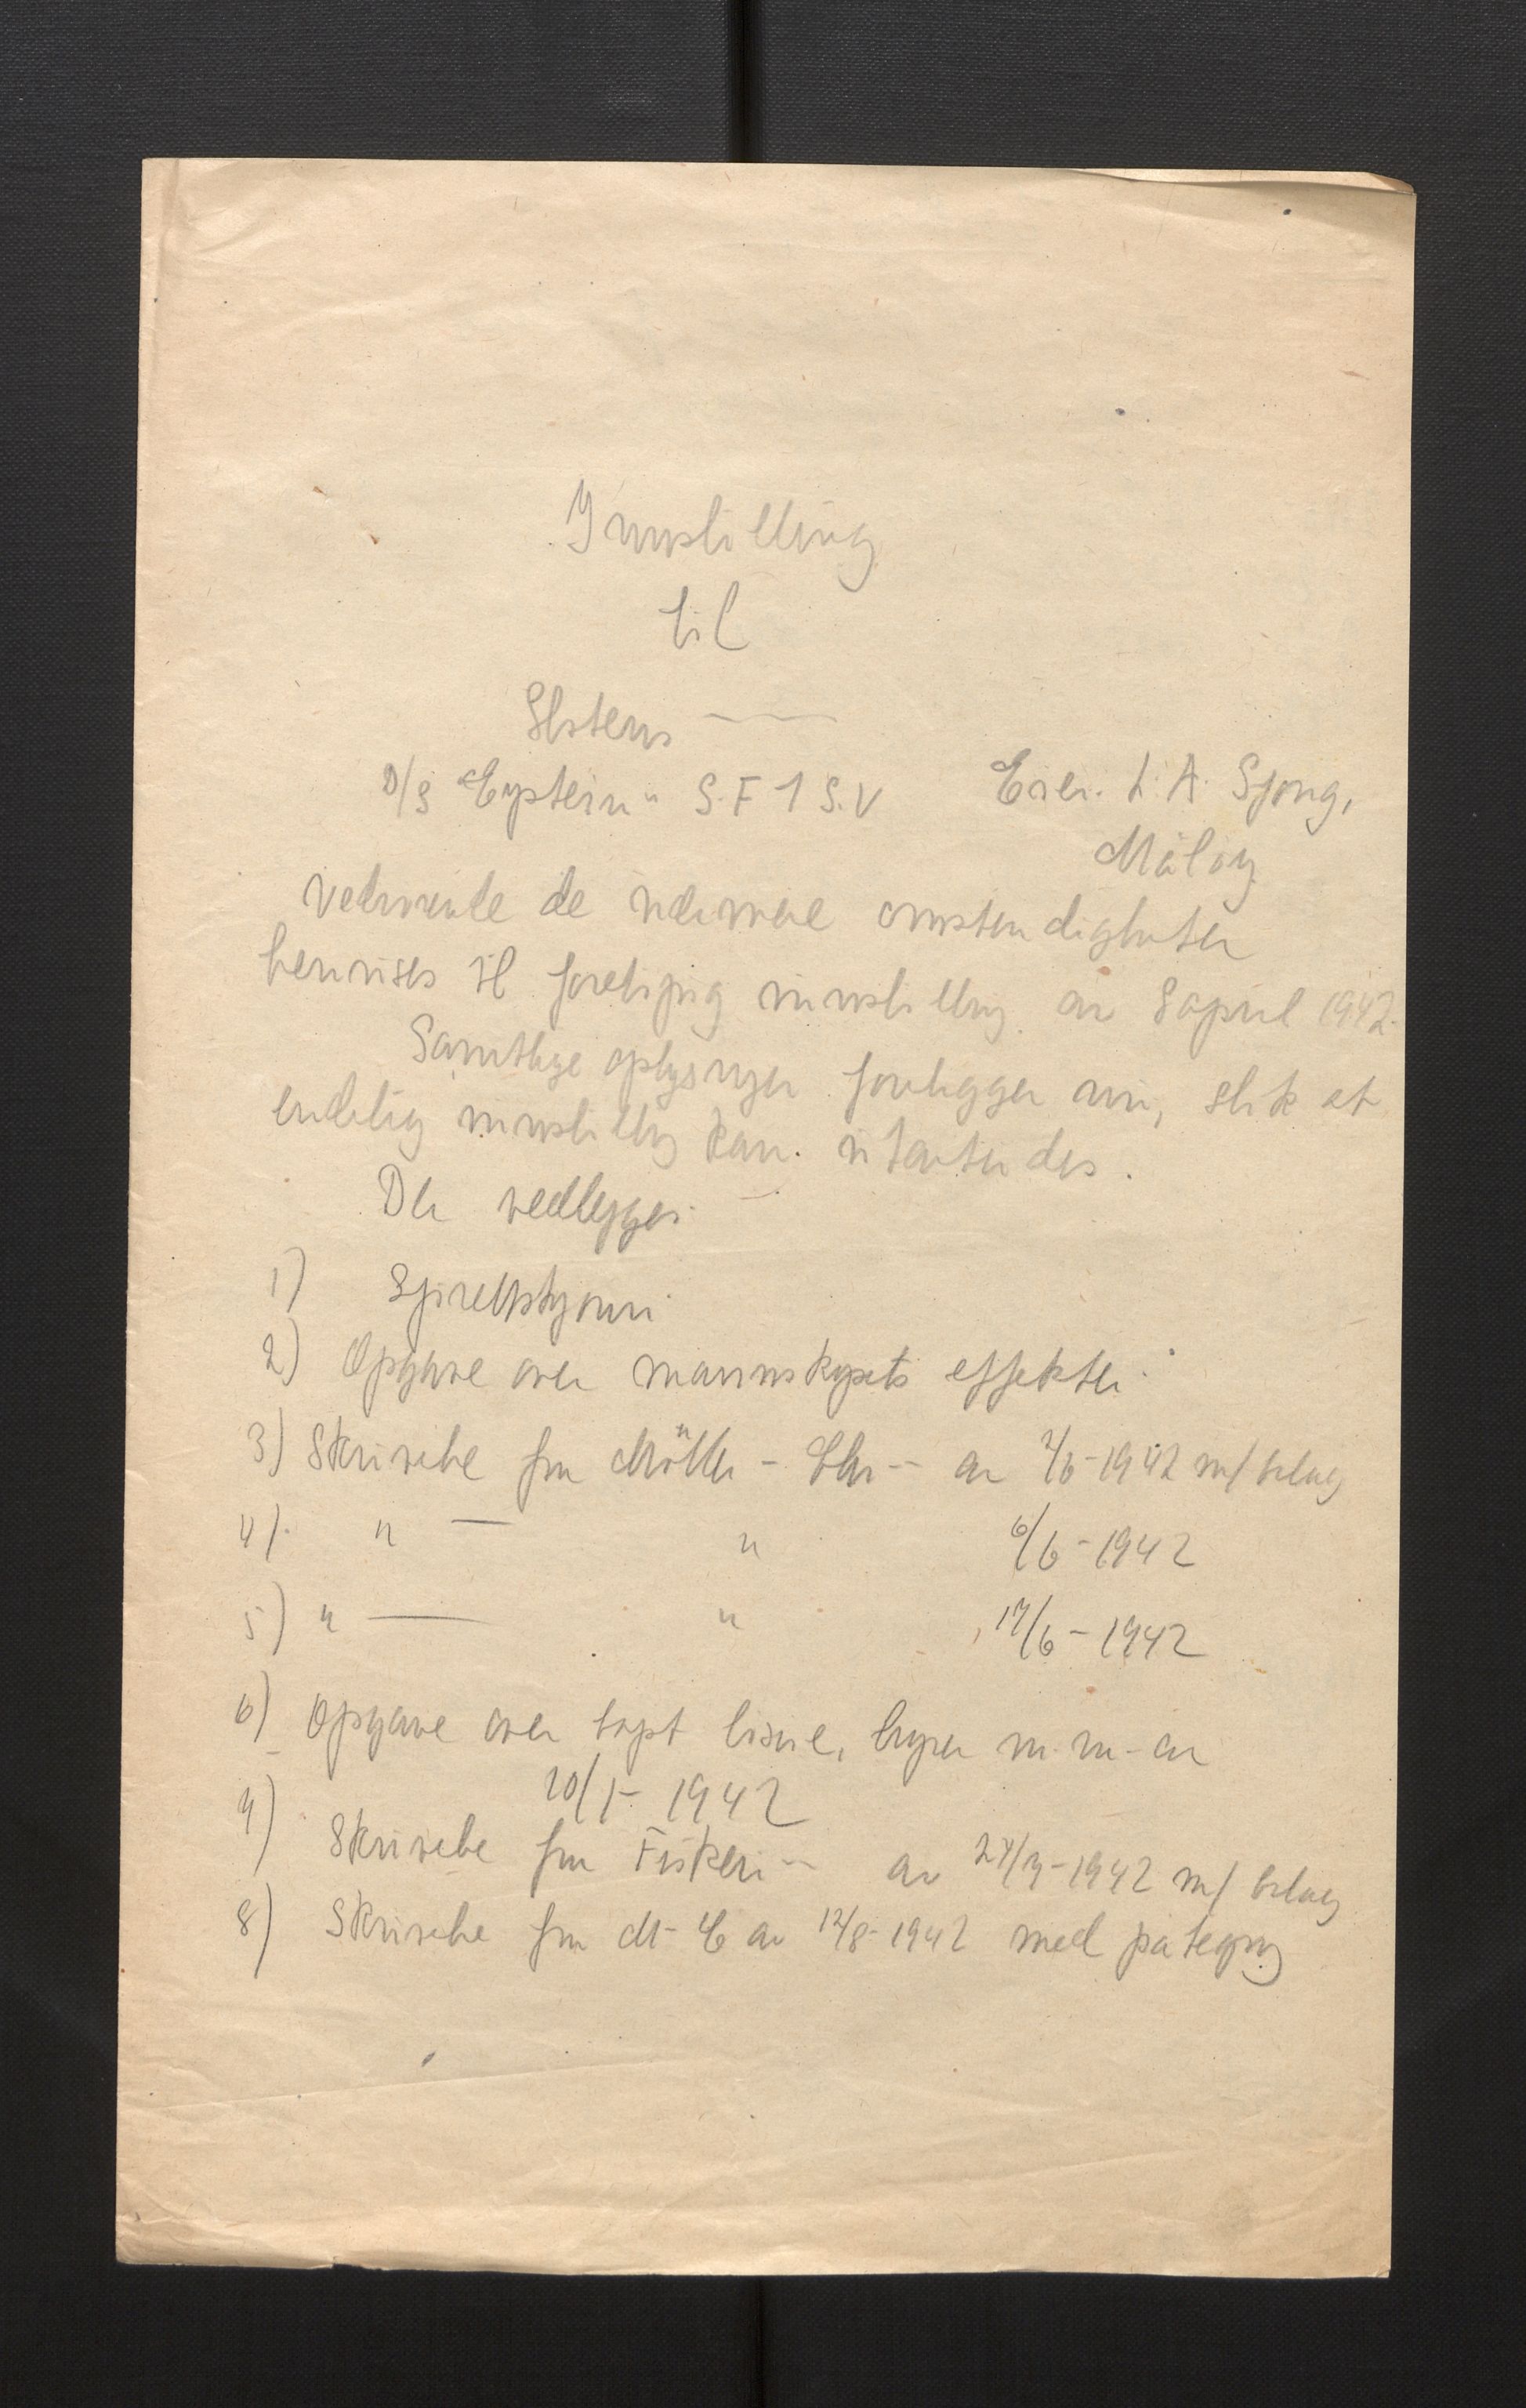 Innstilling
til
Statens ——
D/S "Eystein" S.F 1 S.V Eier. L. A. Sjong,
Måløy
Vedrørende de nærmere omstendigheter
henvises til foreløpig innstilling av 8 april 1942.
Samtlige oplysninger foreligger nu, slik at
endelig innstilling kan utarbeides.
Der vedlegges
1) Sjøretts
2) Opgave over mannskapets effekter
3) Skrivelse fra Möller - av 2/6-1942 m/ bilag
4) " — " 6/6-1942
5) " — " 17/6-1942
6) Opgave over tapt line, m.m. av
20/5- 1942
7) Skrivelse fra Fiskeri-- av 24/7-1942 m/ bilag
8) Skrivelse fra M- E av 12/8-1942 med påtegning